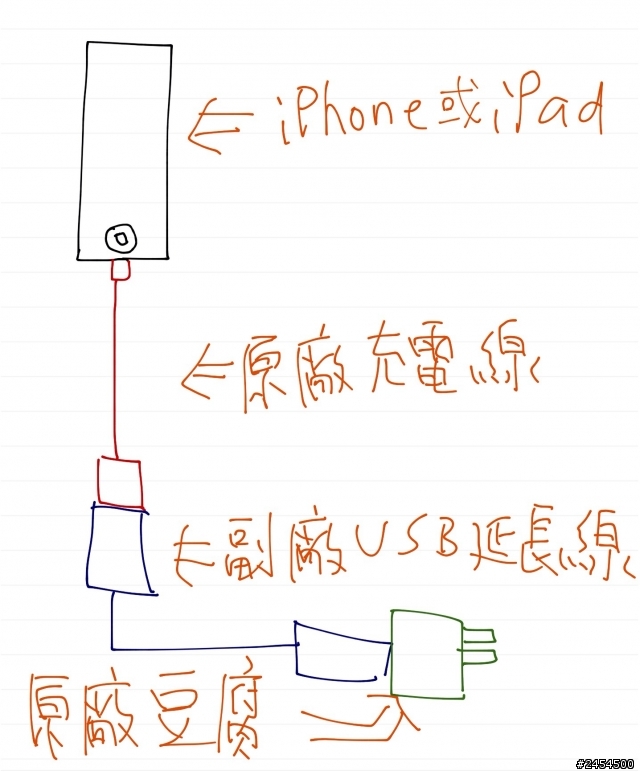 iPhone或iPad
原廠充電線
副廠USB延長線
原廠豆腐
#2454500